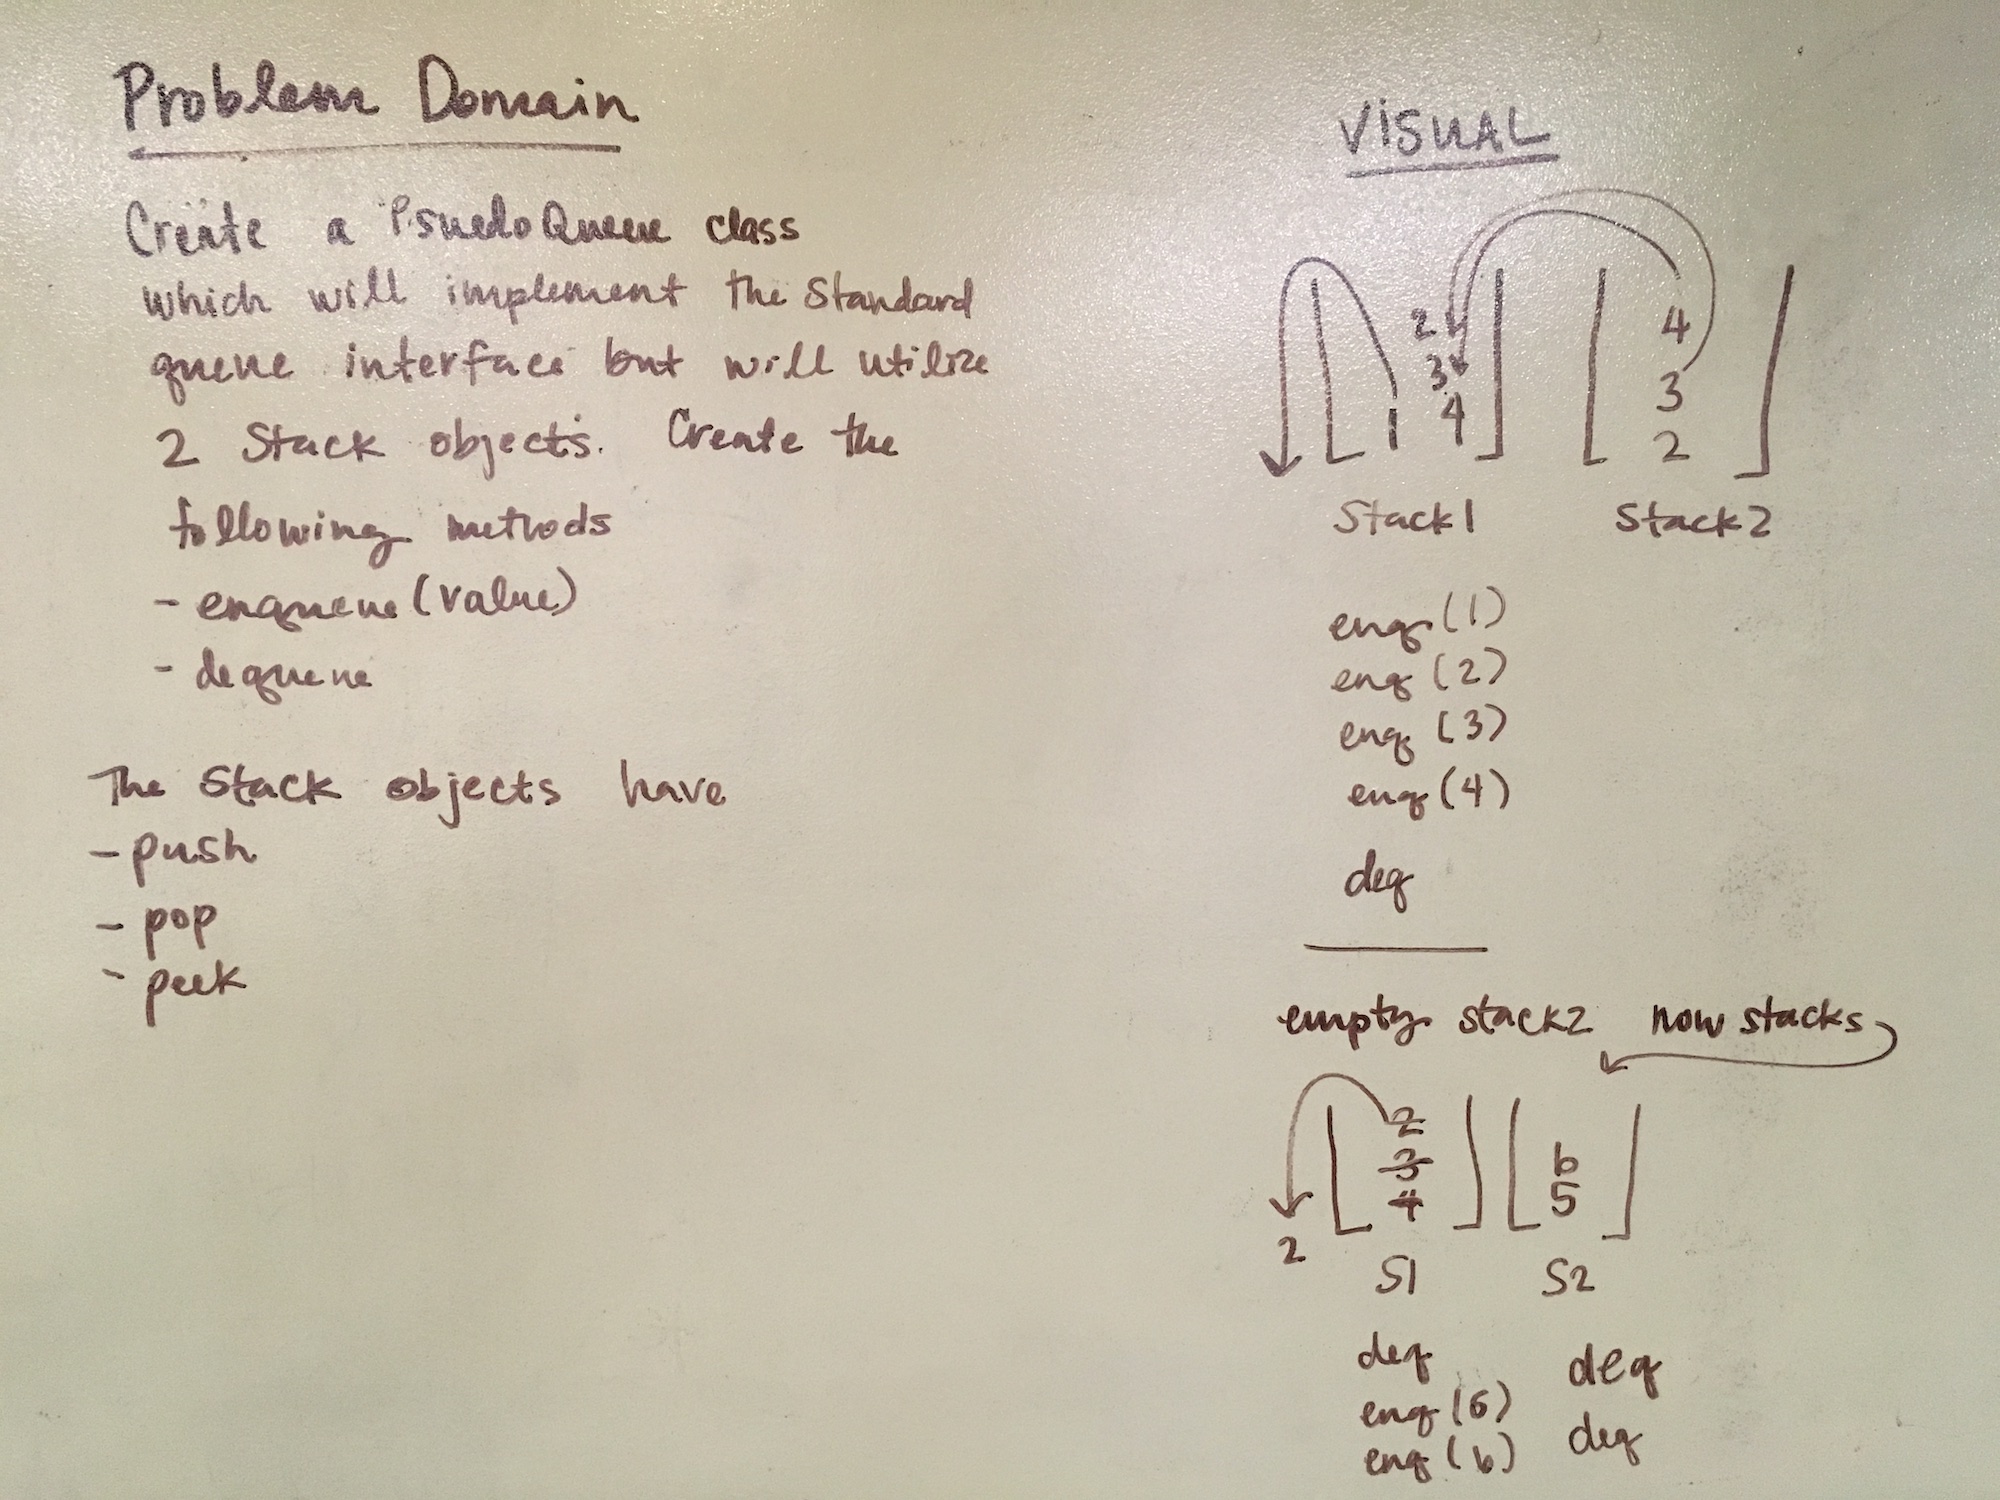 Problem Domain
Create a PsuedoQueue class
which will implement the Standard
queue interface but will utilize
2 Stack objects. Create the
following methods
- enqueue (value)
- dequeue
The Stack objects have
- push
- pop
- peek
VISUAL
2
3
1 4
4
3
2
Stack1 Stack2
enq (1)
enq (2)
enq (3)
enq (4)
deq
empty stack2 now stacks
2
3
4
6
5
2
S1 S2
deq
enq (5)
enq (6)
deq
deq